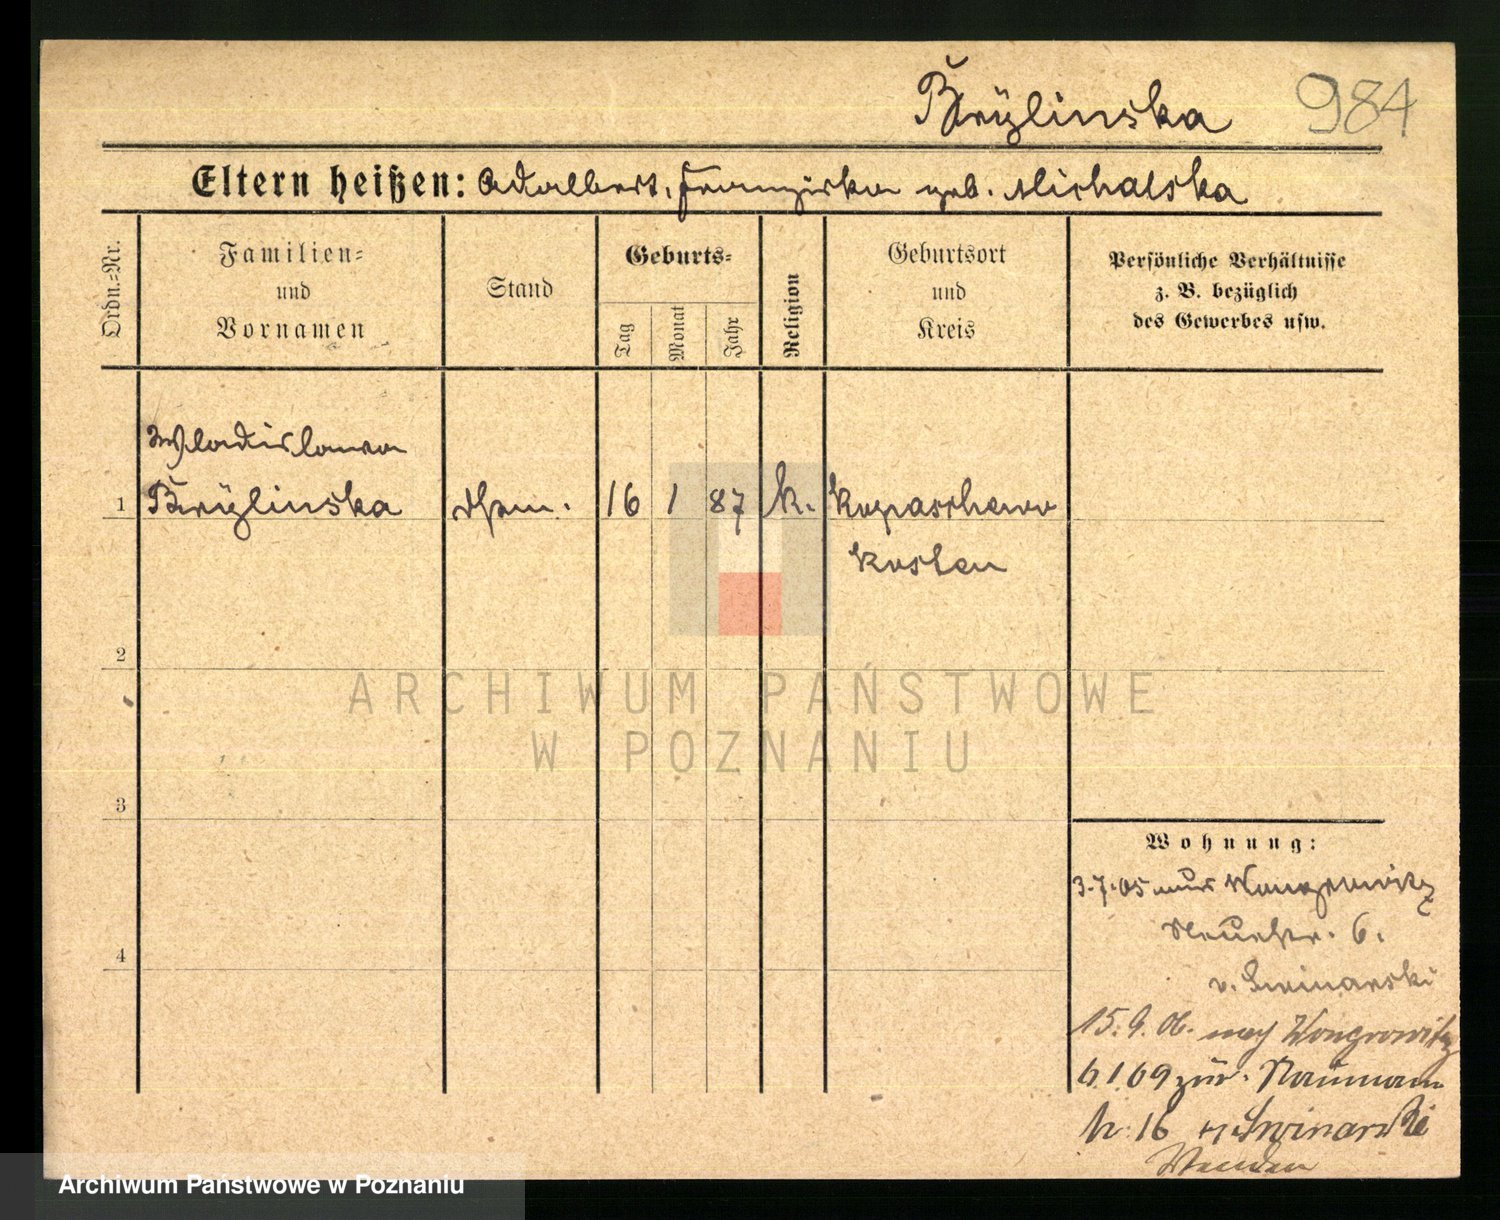 Brÿlinska 984
Eltern heißen: Adalbert, Franziska geb. Michalska
Ordn.-Nr.
Familien-
und
Vornamen
Stand
Geburts-
Tag
Monat
Jahr
Religion
Geburtsort
und
Kreis
Persönliche Verhältnisse
z. B. bezüglich
des Gewerbes usw.
Wladislawa
1 Brÿlinska 16 1 87 k. Kopaschewo
Kosten
2
3
4
Wohnung:
3.7.05 aus Wongrowitz
Neuestr. 6.
v. Swinarski
15.9.06. nach Wongrowitz
6 1 09 zur. Naumann
16 Swinarski
Wenden
ARCHIWUM PAŃSTWOWE
W POZNANIU
Archiwum Państwowe w Poznaniu